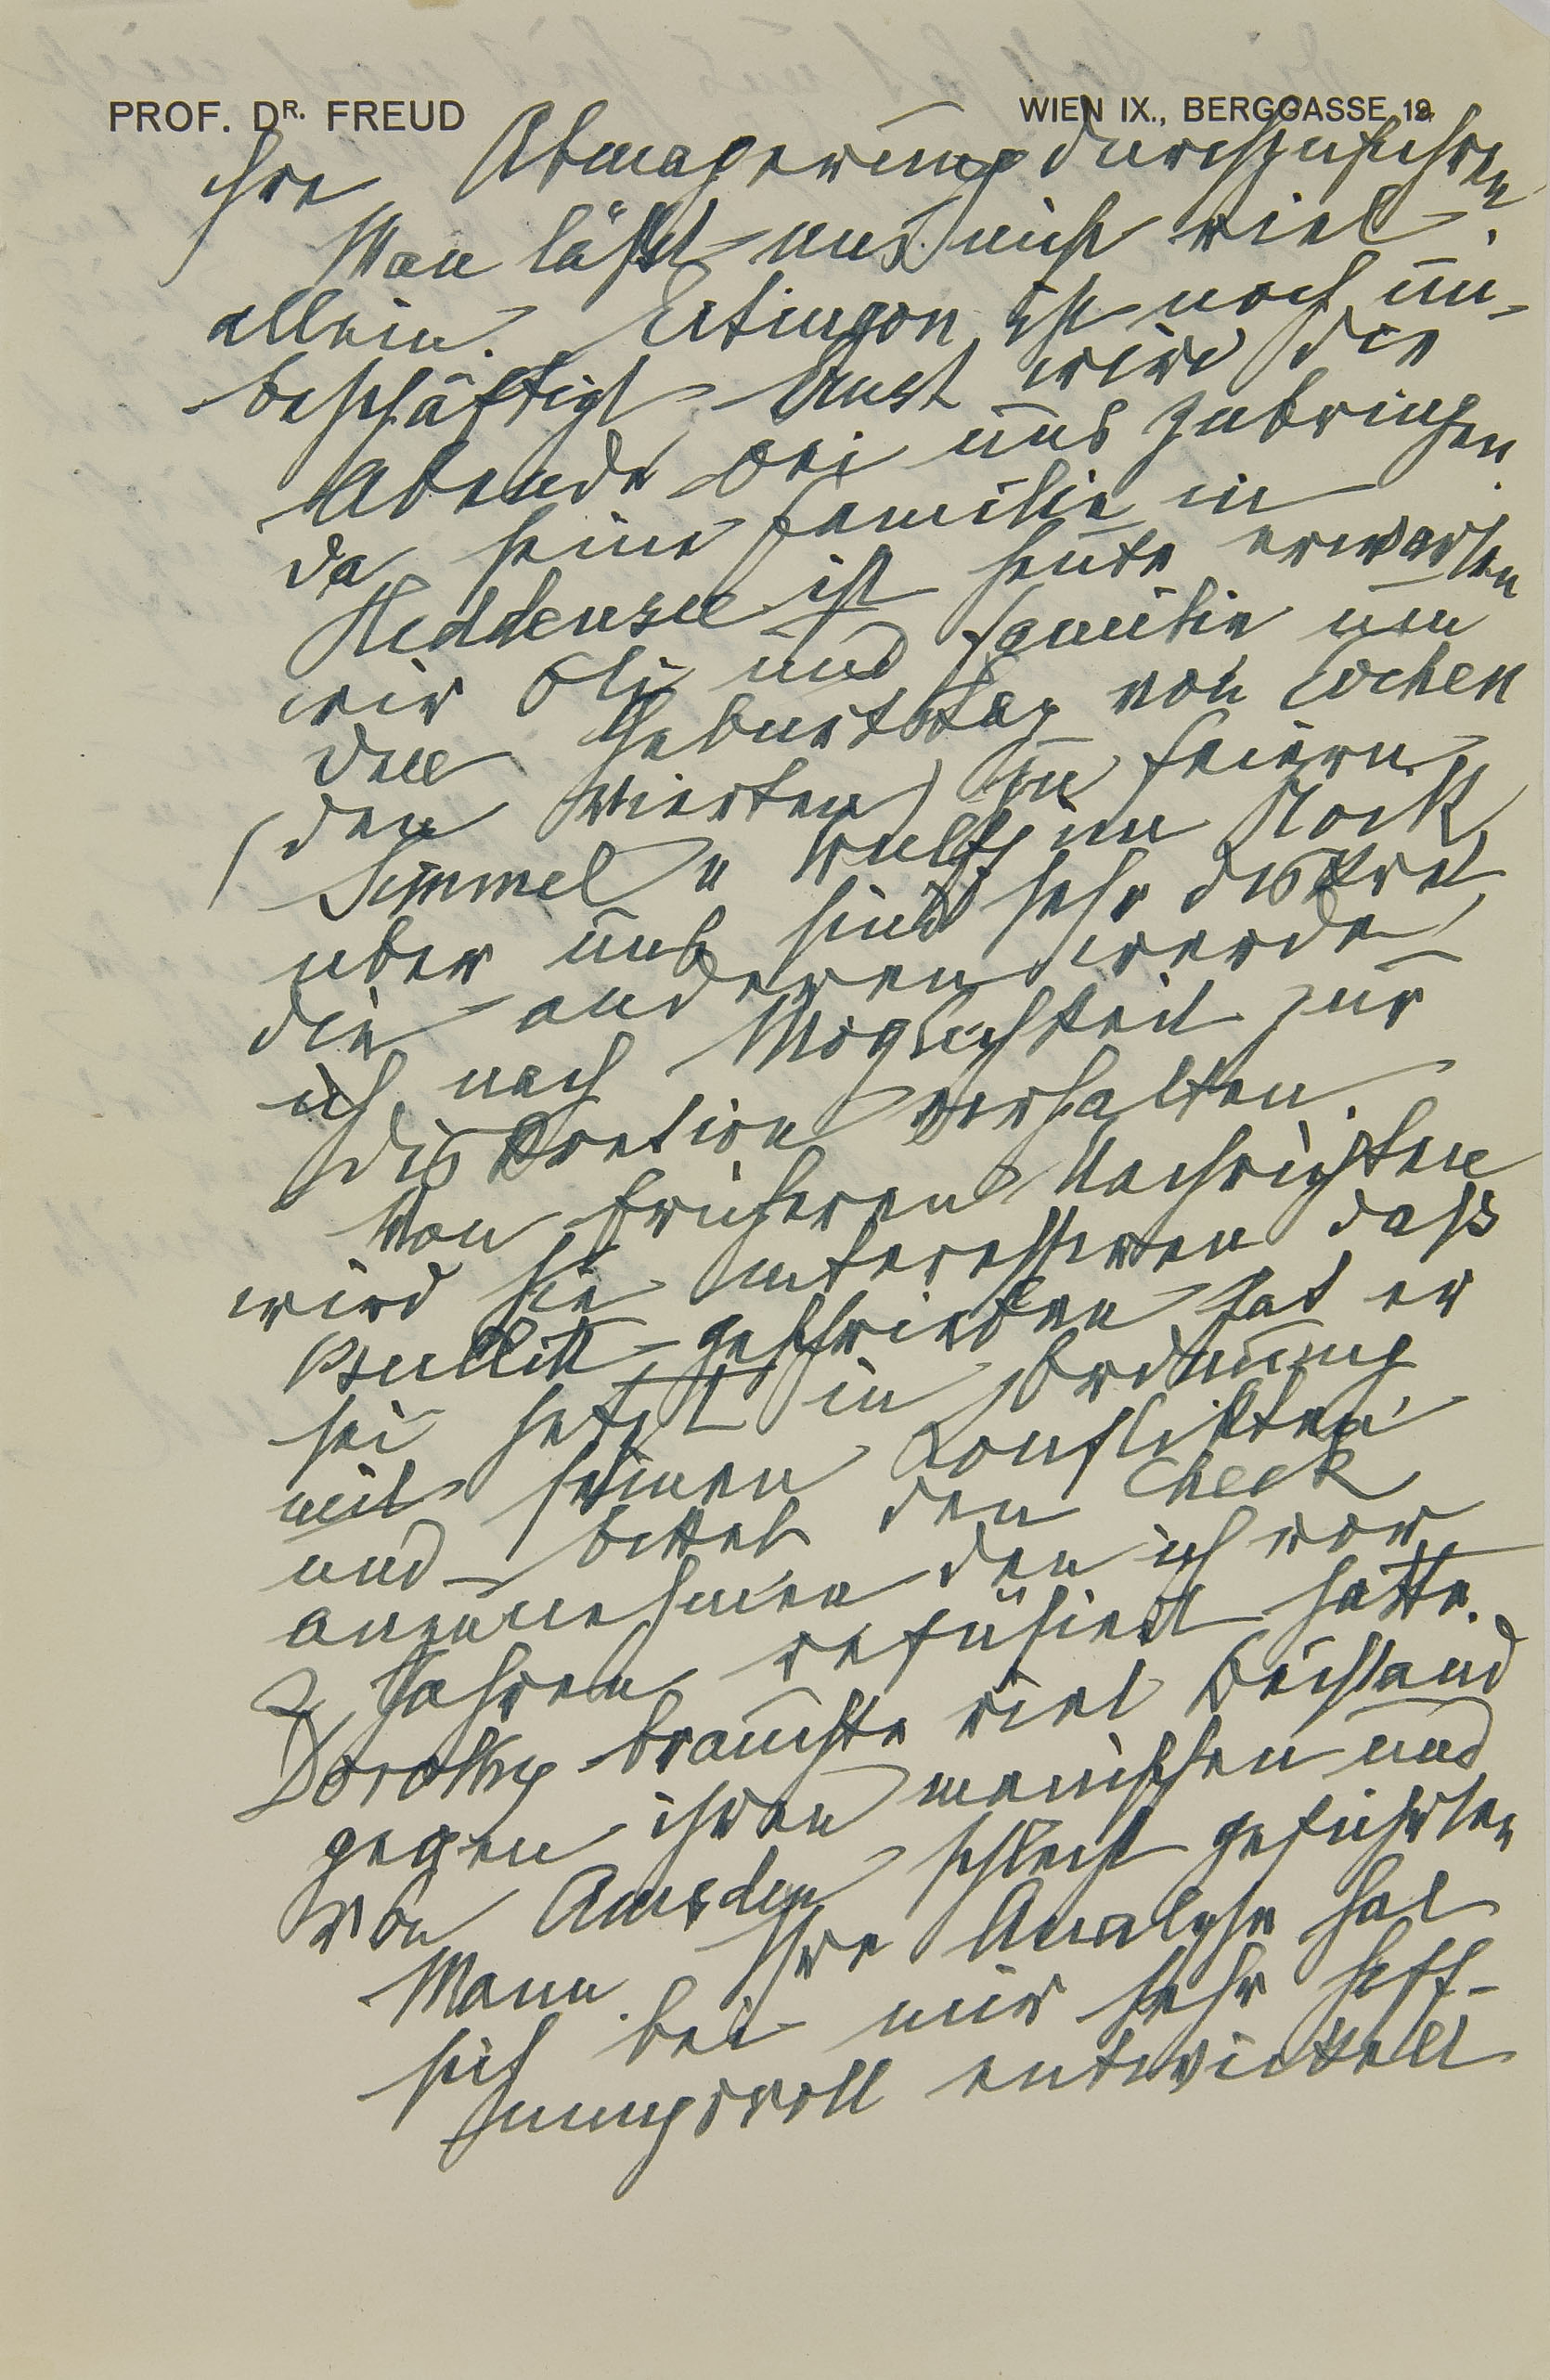 PROF. DR. FREUD WIEN IX., BERGGASSE 19
ihre Abmagerung durchzuführen.
Man läßt uns nicht viel
allein. Eitingon ist noch un-
beschäftigt Ernst wird die
Abende bei uns zubringen
da seine Familie in
Hiddensee ist heute erwarten
wir Oli und Familie um
den Geburtstag von Evchen
(den vierten) zu feiern.
Simmel u Wulff im Stock
über uns sind sehr diskret
die anderen werde
ich nach Möglichkeit zur
Diskretion verhalten.
Von früheren Nachrichten
wird Sie interessieren daß
Bullitt geschrieben hat er
sei jetzt in Ordnung
mit seinen Konflikten
und bittet den Check
anzunehmen den ich vor
2 Jahren refüsiert hatte.
Dorothy brauchte viel Beistand
gegen ihren manischen und
von Amsden schlecht geführten
Mann. Ihre Analyse hat
sich bei mir sehr hoff-
nungsvoll entwickelt